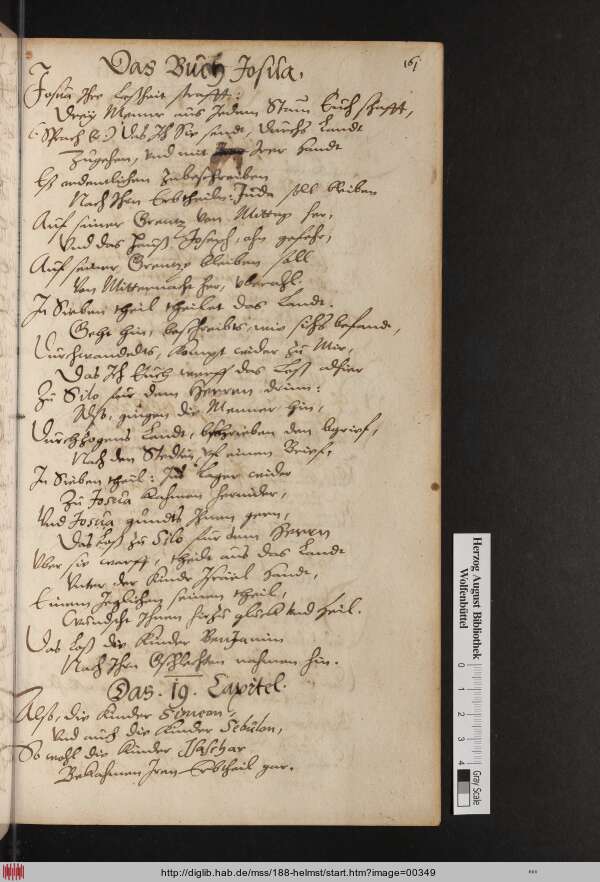 161
Das Buch Josua.
Josua Ihre Laßheit strafft:
Dreÿ Menner aus Jedem Stam Euch schafft,
(Sprach Er) das Ich Sie sendt, durchs Landt
Zugehen, Vnd mit Irer Handt
Eß ordentlichen Zubeschreiben
Nach Ihrn Erbtheiln: Juda soll bleiben
Auf seiner Grentz Von Mittag her,
Vnd das Hauß Joseph, ohn gefehr,
Auf seiner Grentze bleiben soll
Von Mitternacht her, vberahl.
In Sieben theil theilet das Landt.
Geht hin, beschreibts, wie sichs befandt,
Durchwandelts, Kompt wider zu Mir,
Das Ich Euch werff das Loß alhier
Zu Silo für dem Herren drinn:
Also, gingen die Menner hin,
Durchzogens Landt, beschrieben den
Nach den Stedten vf einen Brief,
In Sieben theil: Ins Lager wider
Zu Josua Kahmen hernider,
Vnd Josua gundts Ihnen gern,
Das Loß zu Silo für dem Herrn
Vber sie warff, theilt aus das Landt
Vnter der Kinder Israel Handt,
Einem Jeglichen seinen theil,
Wündscht Ihnen hirzu glück und heil.
Das Loß die Kinder Benjamin
Nach Ihrn Gschlechten nahmen hin.
Das. 19. Capitel.
Alß, die Kinder Simeon,
Vnd auch die Kinder Sebulon,
So wohl die Kinder Isaschar
Bekahmen Iren Erbtheil gar.
Herzog August Bibliothek
Wolfenbüttel
0 1 2 3 4
Gray Scale
http://diglib.hab.de/mss/188-helmst/start.htm?image=00349